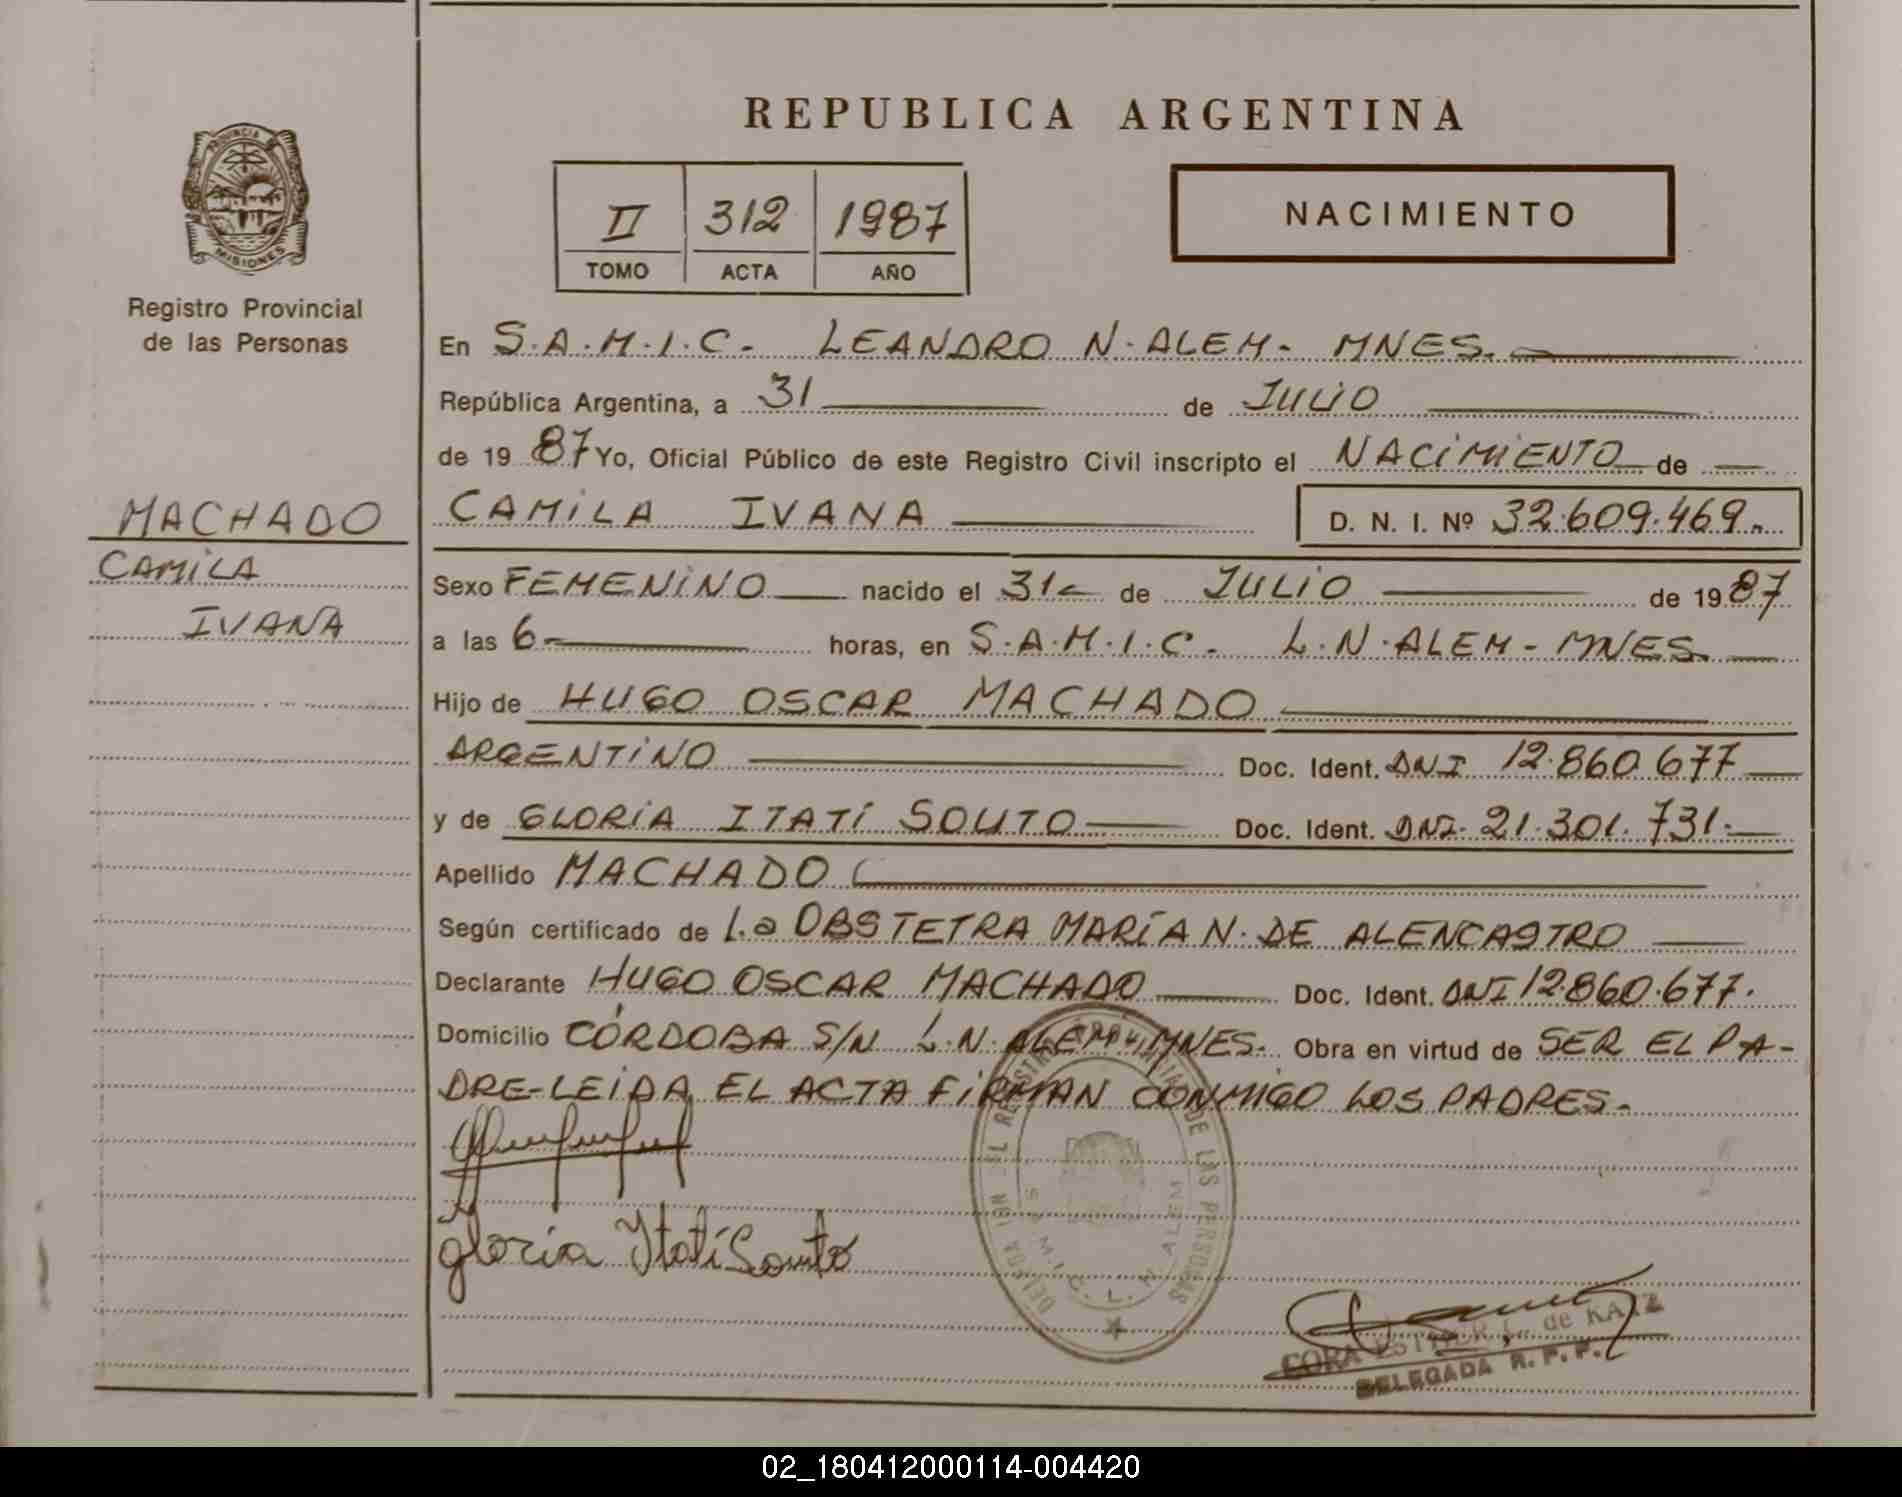 REPUBLICA ARGENTINA
PROVINCIA DE
MISIONES
Registro Provincial
de las Personas
II 312 1987
TOMO ACTA AÑO
NACIMIENTO
En S.A.M.I.C. LEANDRO N. ALEM - MNES.
República Argentina, a 31 de JULIO
de 19 87 Yo, Oficial Público de este Registro Civil inscripto el NACIMIENTO de
MACHADO
CAMILA
IVANA
CAMILA IVANA D. N. I. Nº 32.609.469.
Sexo FEMENINO nacido el 31 de JULIO de 19 87
a las 6 horas, en S.A.M.I.C. - L.N. ALEM - MNES.
Hijo de HUGO OSCAR MACHADO
ARGENTINO Doc. Ident. DNI 12.860.677
y de GLORIA ITATÍ SOUTO Doc. Ident. DNI. 21.301.731.
Apellido MACHADO
Según certificado de La OBSTETRA MARÍA N. DE ALENCASTRO
Declarante HUGO OSCAR MACHADO Doc. Ident. DNI 12.860.677.
Domicilio CÓRDOBA S/N L.N. ALEM MNES. Obra en virtud de SER EL PA-
DRE-LEIDA EL ACTA FIRMAN CONMIGO LOS PADRES.
gloria Itatí Souto
DE LAS PERSONAS
S.A.M.I.C. L. N. ALEM
CORA ESTHER L. de KATZ
DELEGADA R. P. P.
02_180412000114-004420